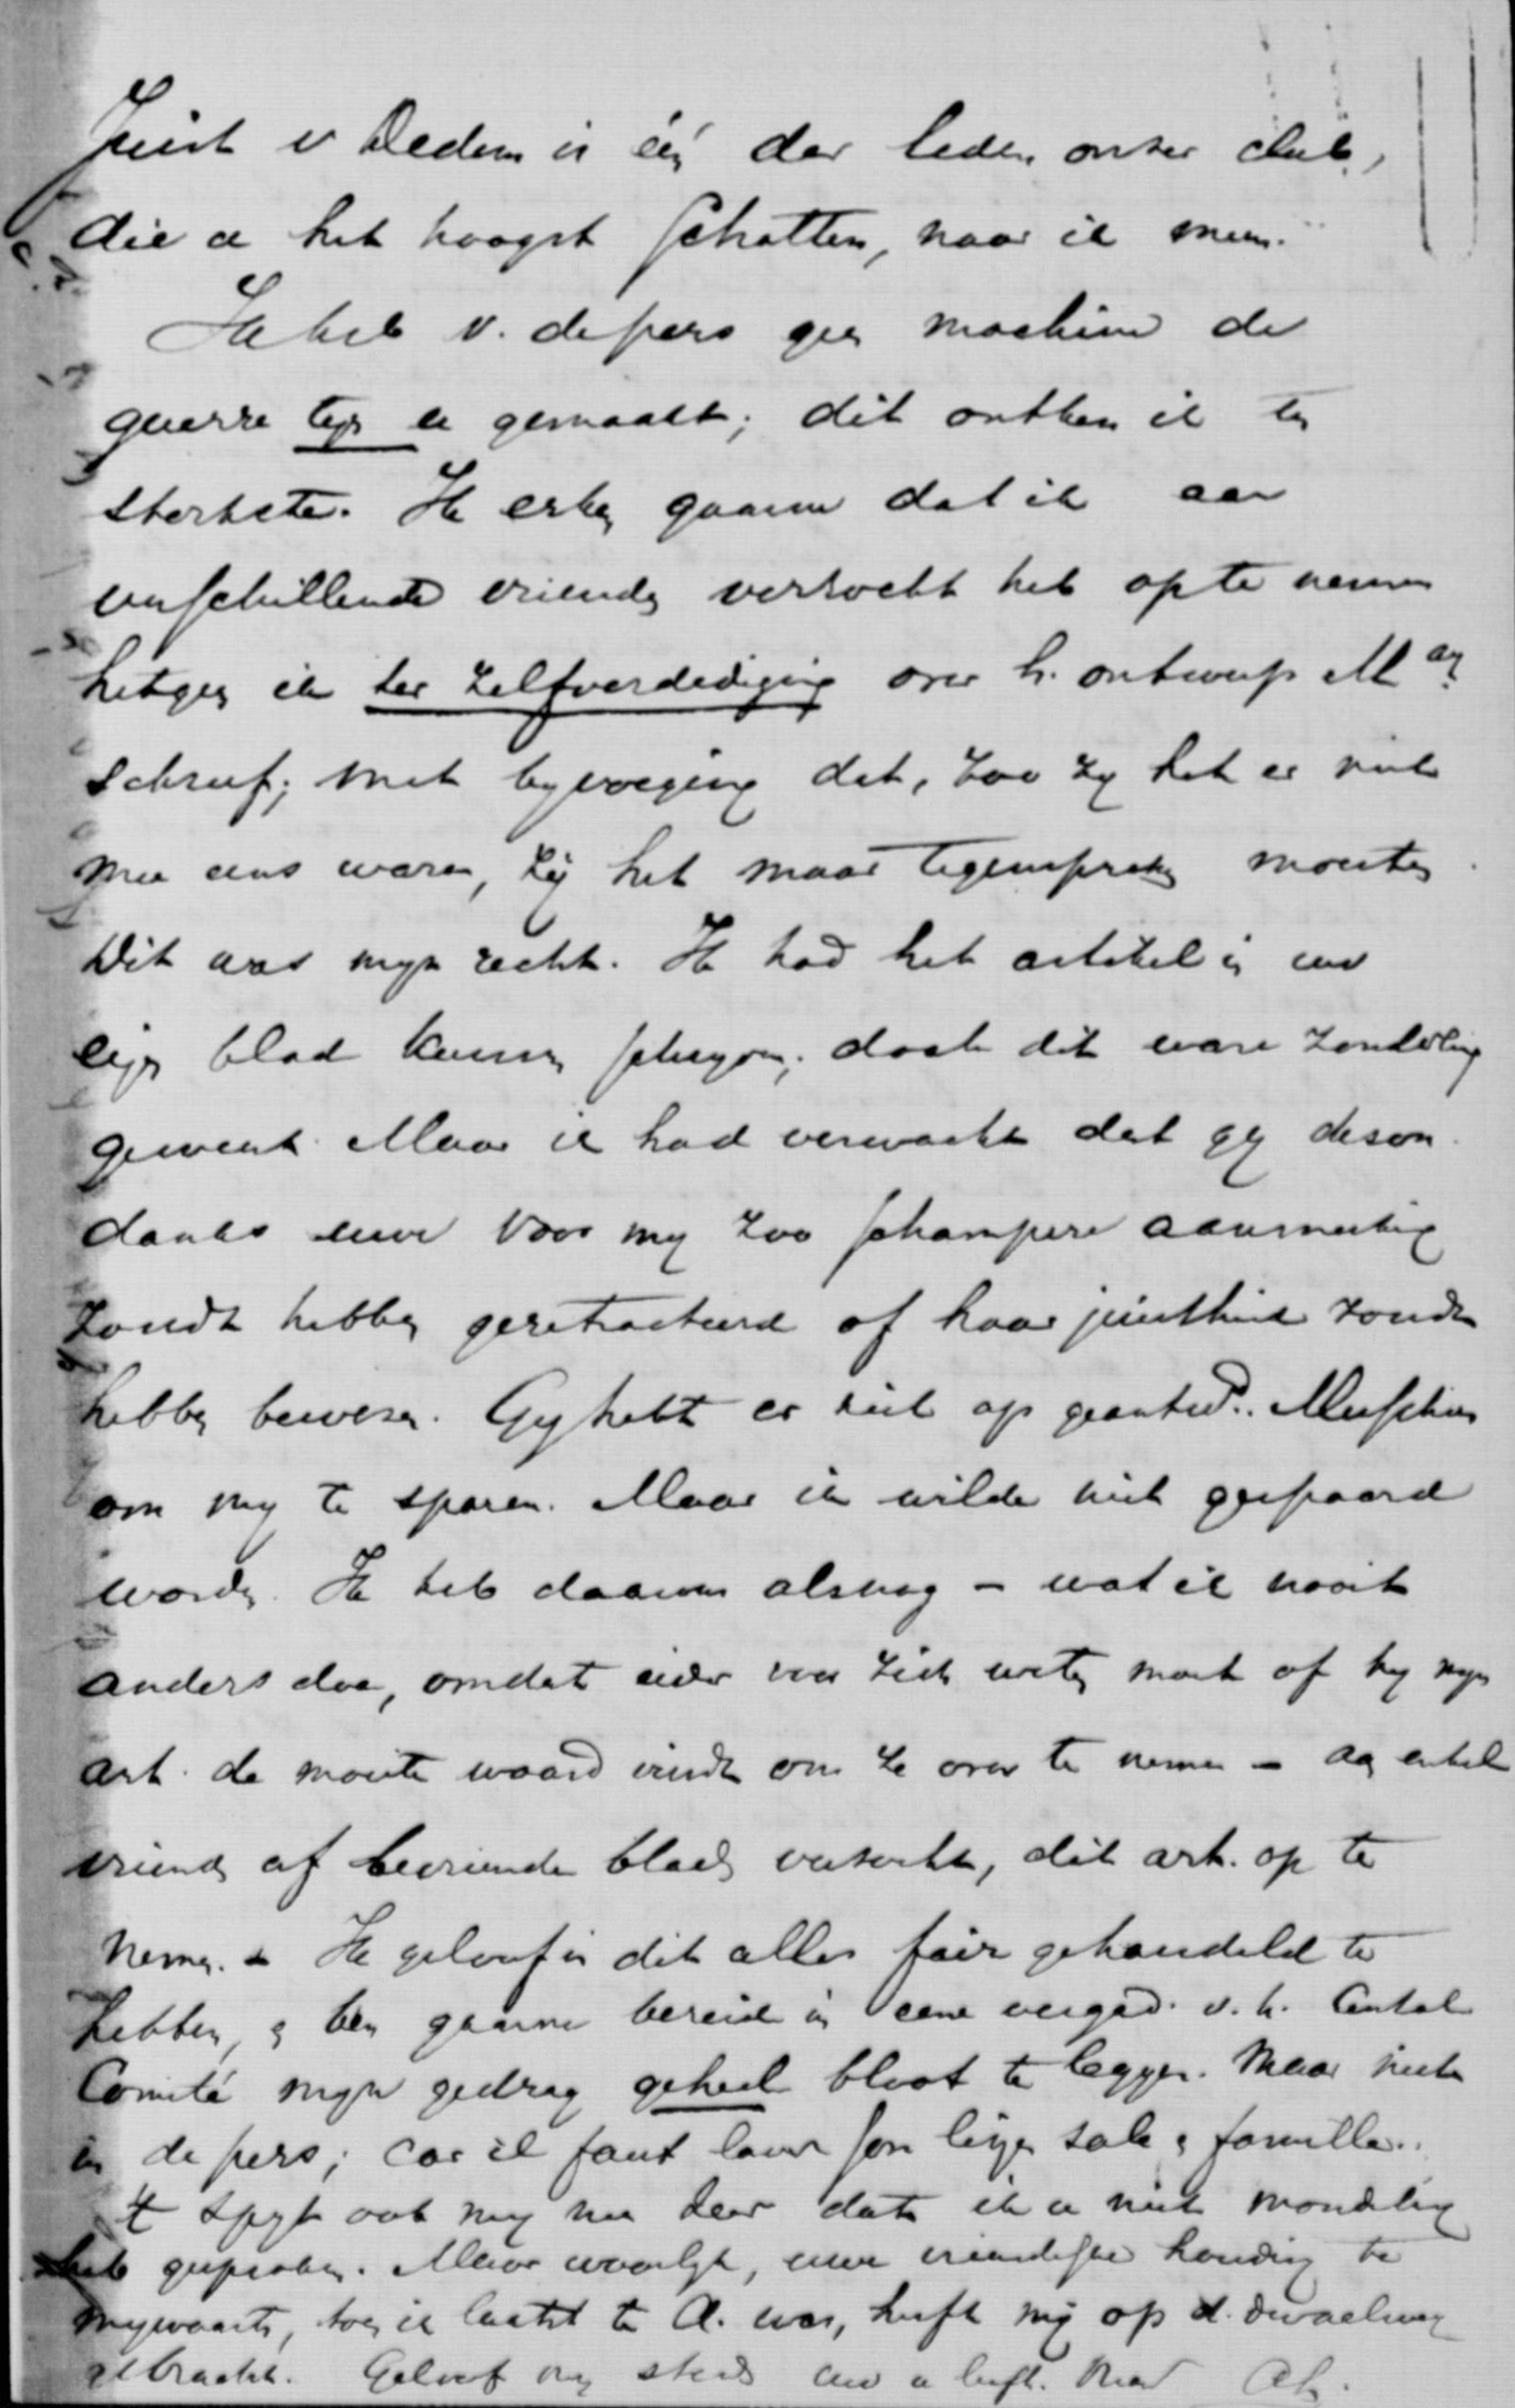 Juist v Dedem is één der leden onzer club,
die u het hoogst schatten, naar ik meen.
Ik heb v. de pers geen machine de
guerre tegen u gemaakt; dit ontken ik ten
sterkste. Ik erken gaarne dat ik aan
verschillende vrienden verzocht heb op te nemen
hetgeen ik ter zelfverdediging over h. ontwerp Man.
schreef; met byvoeging dat, zoo zy het er niet
mee eens waren, zij het maar tegenspreken moesten.
Dit was myn recht. Ik had het artikel in uw
eigen blad kunnen schryven; doch dit ware zonderling
geweest. Maar ik had verwacht dat gy deson
danks uwe voor my zoo schampere aanmerking
zoudt hebben geretracteerd of haar juistheid zoudt
hebben bewezen. Gy hebt er niet op geantwd. Misschien
om my te sparen. Maar ik wilde niet gespaard
worden. Ik heb daarom alsnog - wat ik nooit
anders doe, omdat ieder voor zich weten moet of hy myn
art. de moeite waard vindt om ze over te nemen - aan enkele
vrienden of bevriende bladen verzocht, dit art. op te
nemen. - Ik geloof in dit alles fair gehandeld te
hebben, en ben gaarne bereid in eene vergad. v. h. Centrul
Comité myn gedrag geheel bloot te leggen. Maar niet
in de pers; car il faut laver son linge sale en famille.
't Spyt ook my nu zeer dat ik u niet mondeling
heb gesproken. Maar waarlyk, uwe vriendelyke houding te
mywaarts, toen ik laatst te A. was, heeft my op d. dwaalweg
gebracht. Geloof my steeds uw u liefh. vriend